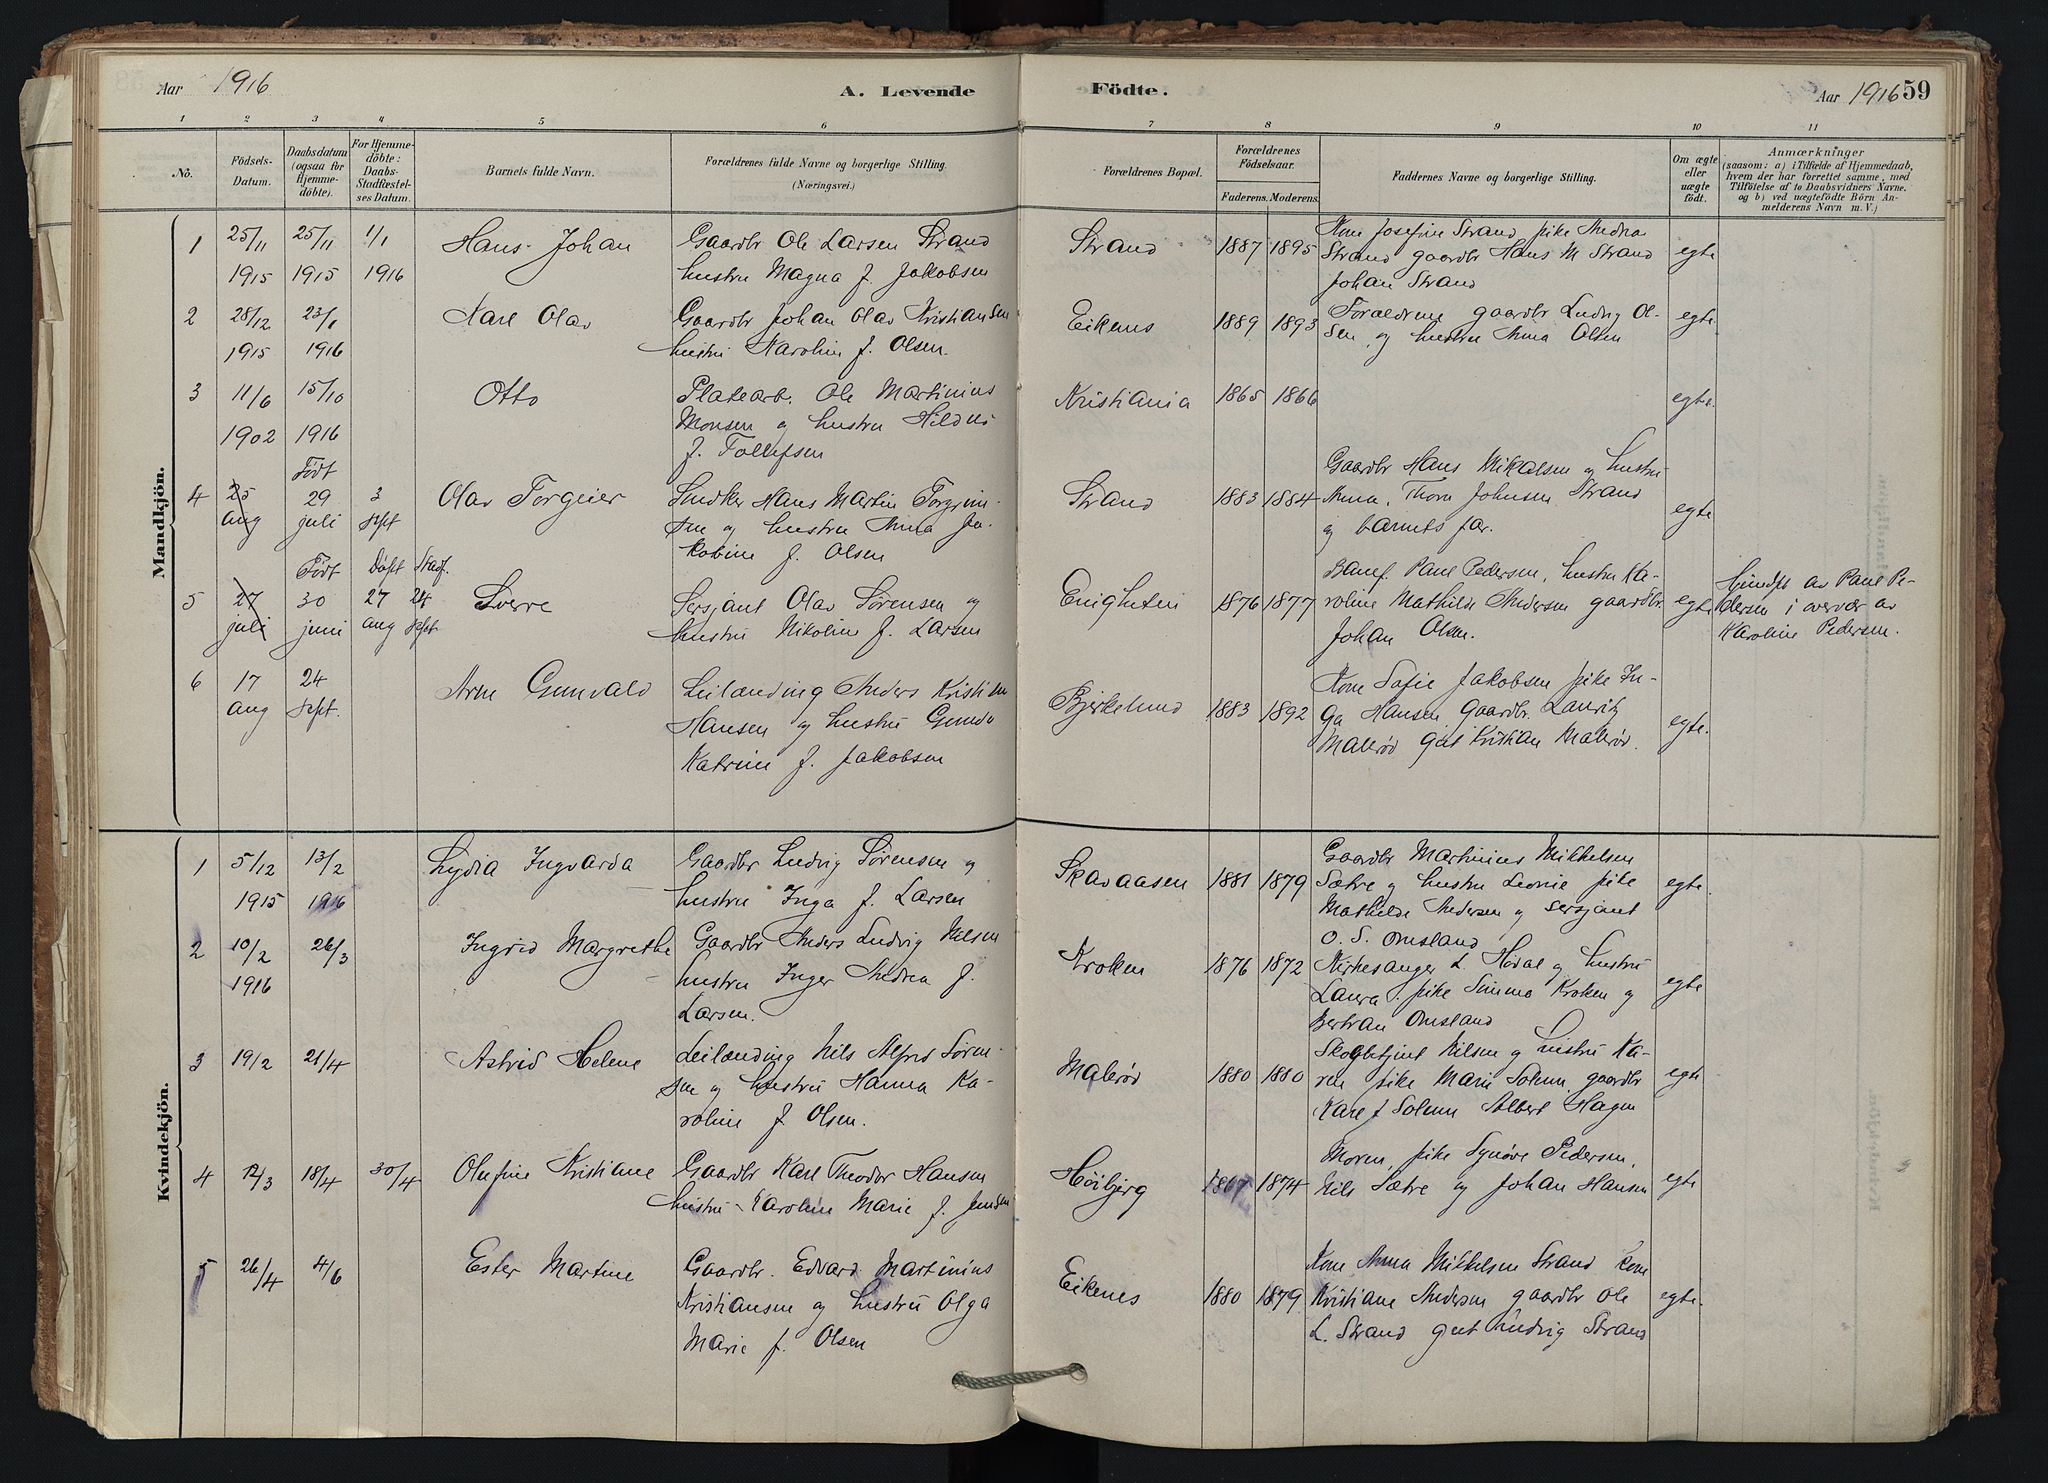 Aar 1916
A. Levende
Födte.
Aar 1916
59
1
2
3
4
5
6
7
8
9
10
11
No.
Födsels-
Datum.
Daabsdatum
(ogsaa for
Hjemme-
döbte).
For Hjemme-
döbte:
Daabs-
Stadfæstel-
ses Datum.
Barnets fulde Navn.
Forældrenes fulde Navne og borgerlige Stilling.
(Næringsvei.)
Forældrenes Bopæl.
Forældrenes
Födselsaar.
Faderens.
Moderens.
Faddernes Navne og borgerlige Stilling.
Om ægte
eller
uægte
födt.
Anmærkninger
(saasom: a) i Tilfælde af Hjemmedaab,
hvem der har forrettet samme, med
Tilföielse af to Daabsvidners Navne.
og b) ved uægtefödte Börn An-
melderens Navn m. V.)
Mandkjön.
1
25/11
1915
25/11
1915
1/1
1916
Hans Johan
Gaardbr Ole Larsen Strand
hustru Magna f. Jakobsen
Strand
1887
1895
Kone Josefine Strand pike Andrea
Strand gaardbr Hans M Strand
Johan Strand
egte
2
28/12
1915
23/1
1916
Karl Olav
Gaardbr Johan Olav Kristiansen
hustru Karoline f. Olsen.
Eikenes
1889
1893
Forældrene gaardbr Ludvig Ol-
sen, og hustru Anna Olsen
egte
3
11/6
1902
15/10
1916
Otto
Platearb. Ole Martinius
Monsen og hustru Hildus
f. Tollefsen
Kristiania
1865
1866
egte.
4
25
aug
Født
29
juli
3
sept
Olav Torgeier
Smdker Hans Martin Torgjim-
sen og hustru Anna Ja-
kobine f. Olsen
Strand
1883
1884
Gaardbr Hans Mikalsen og hustru
Anna, Thora Johnsen Strand
og barnets far.
egte
5
27
juli
Født
30
juni
Døpt
27
aug
Stadf.
24
sept.
Sverre
Sersjant Olav Sørensen og
hustru Nikoline f. Larsen
Enigheten
1876
1877
Banef. Paul Pedersen, hustru Ka-
roline Mathilde Andersen gaardbr.
Johan Olsen.
egte
Hjmdpt av Paul Pe-
dersen i overvær av
Karoline Pedersen.
6
17
aug
24
sept.
Arne Gunvald
Leilænding Anders Kristian
Hansen og hustru Gunda
Katrine f. Jakobsen
Bjerkelund
1883
1892
Kone Sofie Jakobsen pike In-
ga Hansen, Gaardbr. Lauritz
Malerød gut Kristian Malerød.
egte.
Kvindekjön.
1
5/12
1915
13/2
1916
Lydia Ingvarda
Gaardbr Ludvig Sørensen og
hustru Inga f. Larsen
Skavaasen
1881
1879
Gaardbr Martinius Mikkelsen
Sætre og hustru Leonie pike
Mathilde Andersen og sersjant
O. S. Omsland
egte.
2
10/2
1916
26/3
Ingrid Margrethe
Gaardbr Anders Ludvig Nilsen
hustru Inger Andrea f.
Larsen.
Kroken
1876
1872
Kirkesanger L. Hovde og hustru
Laura. pike Simma Kroken og
Bertran Omsland
egte
3
19/2
21/4
Astrid Helene
Leilænding Nils Alfred Søren-
sen og hustru Hanna Ka-
roline f Olsen.
Malerød
1880
1880
Skogbetjent Nilsen og hustru Ka-
ren pike Marie Solum, gaardbr
Karl J Solum Albert Hagen
egte
4
12/3
18/4
30/4
Olufine Kristiane
Gaardbr Karl Theodor Hansen
hustru Karoline Marie f. Jensen
Høibjerg
1867
1874
Moren, pike Synøve Pedersen,
Nils Sætre og Johan Hansen
egte
5
26/4
4/6
Ester Martine
Gaardbr. Edvard Martinius
Kristiansen og hustru Olga
Marie f. Olsen
Eikenes
1880
1879
Kone Anna Mikkelsen Strand kone
Kristiane Andersen gaardbr Ole
L. Strand gut Ludvig Strand
egte.